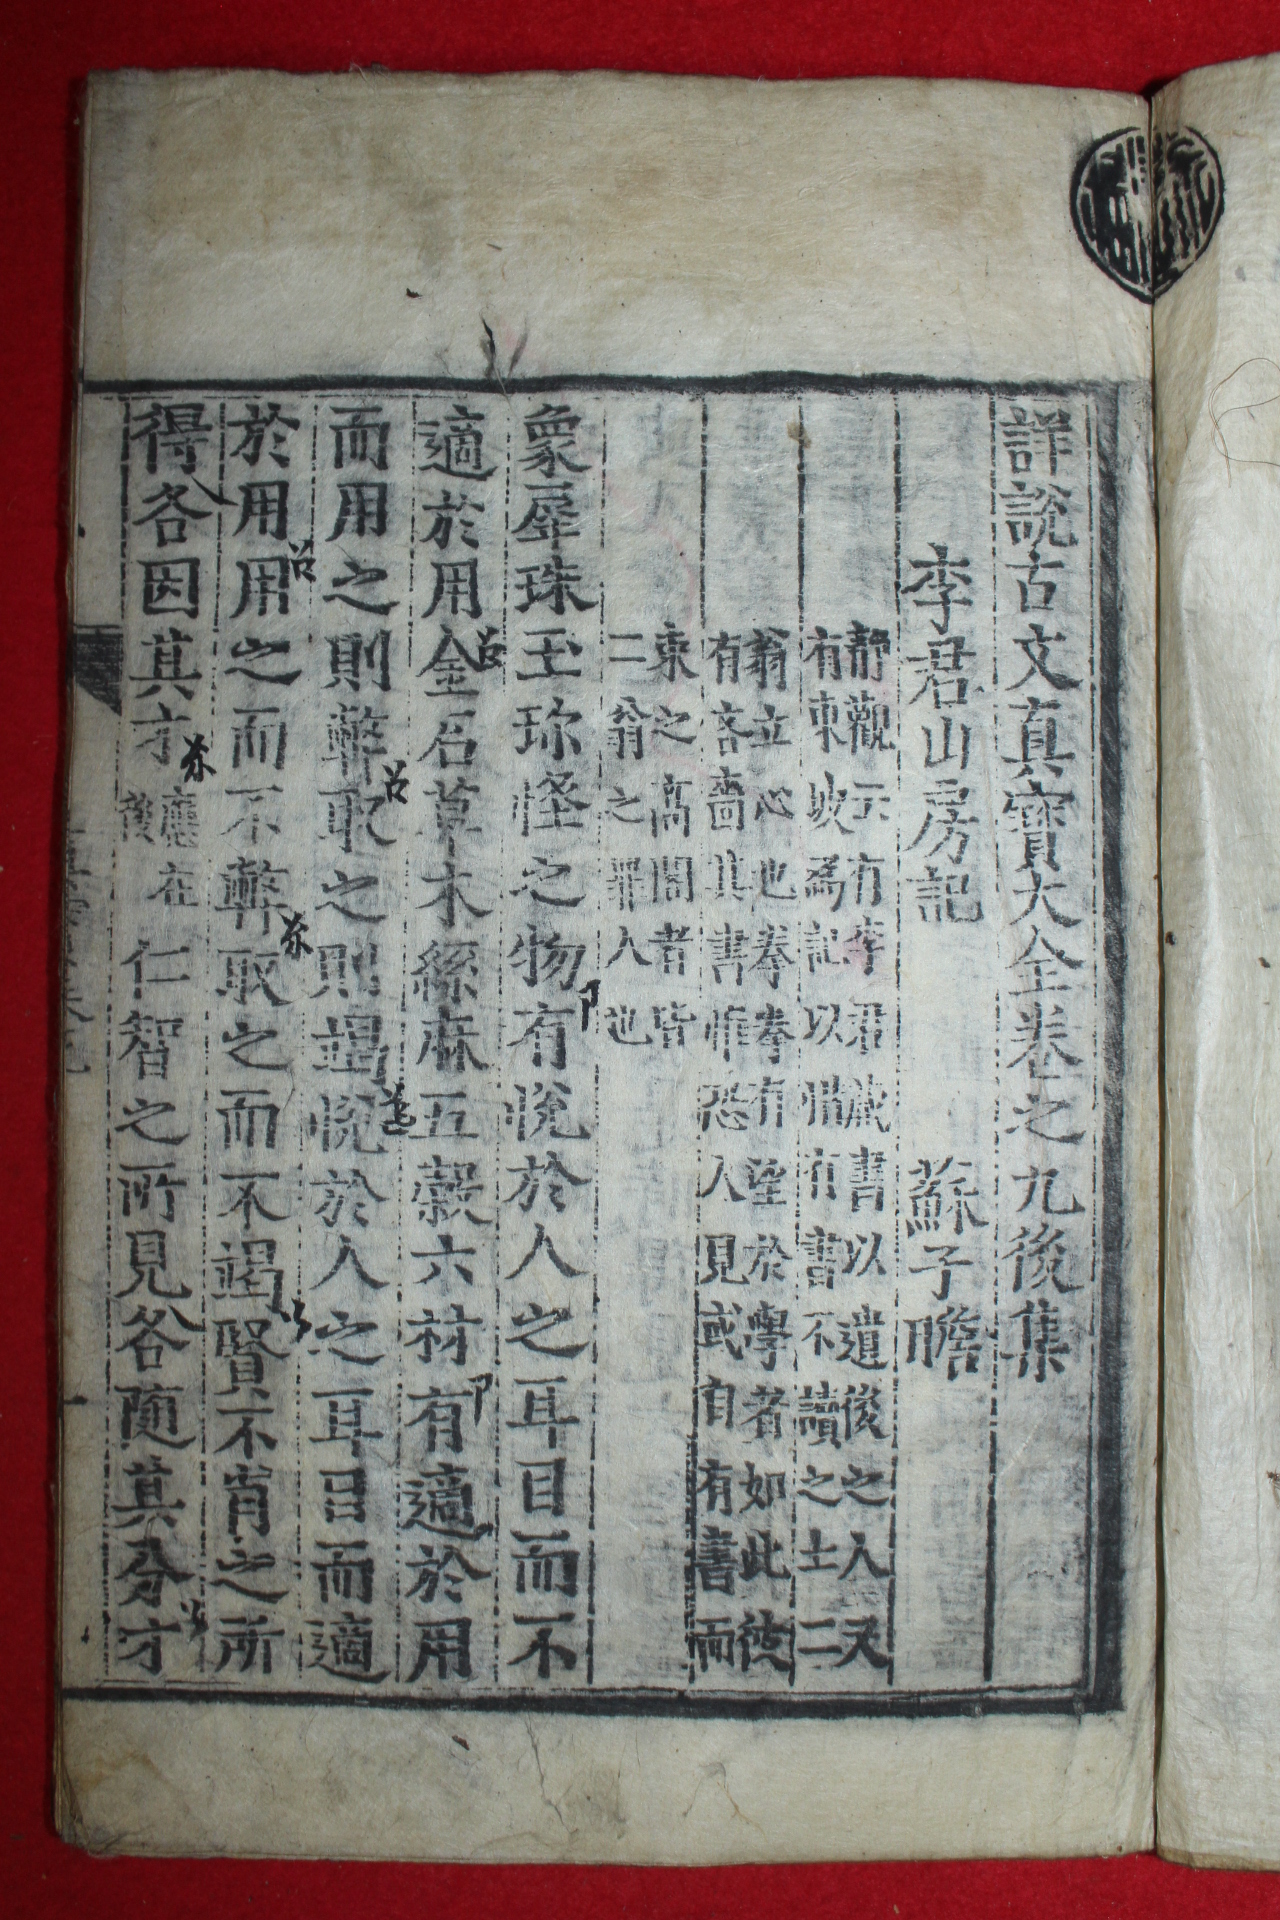 詳說古文眞寶大全卷之九後集
李君山房記 蘇子瞻
靜觀云有李君藏書以遺後之人又
有東坡爲記以惜有書不讀之士二
翁立心也拳拳有望於學者如此彼
有吝嗇其書惟恐人見或自有書而
束之高閣者皆
二翁之罪人也
象犀珠玉珎恠之物有悅於人之耳目而不
適於用金石草木絲麻五穀六材有適於用
而用之則弊取之則竭悅於人之耳目而適
於用用之而不弊取之而不竭賢不肖之所
得各因其才應在後仁智之所見各隨其分才